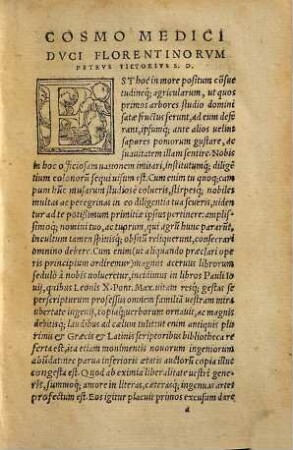 COSMO MEDICI
DVCI FLORENTINORVM
PETRVS VICTORIVS S. D.
EST hoc in more positum cōsue
tudineq́; agricolarum, ut quos
primos arbores studio domini
satæ fructus ferunt, ad eum defe
rant, ipsumq́; ante alios uelint
sapores pomorum gustare, ac
suauitatem illam sentire. Nobis
in hoc officiosam nationem imitari, institutumq́; diligē
tium colonorū sequi uisum est. Cum enim tu quoq; cam
pum hūc musarum studiose colueris, stirpesq́; nobiles
multas ac peregrinas in eo diligentia tua seueris, uiden
tur ad te potissimum primitiæ ipsius pertinere: amplissi-
moq́; nomini tuo, ac tuorum, qui agrū hunc pararūt,
incultum tamen spinisq́; obsitū reliquerunt, consecrari
omnino debere. Cum enim (ut aliquando præclari ope
ris principium ordirentur) magnū aceruū librorum
sedulò à nobis uoluerētur, incidimus in libros Pauli Io
uij, quibus Leonis X. Pont. Max. uitam resq́; gestas se
perscripturum professus omnem familiā uestram mira
libertate ingenij, copiaq́; uerborum ornauit, ac magnis
debitisq́; laudibus ad cælum tulit: ut enim antiquis pluri
mis & Græcis & Latinis scriptoribus bibliotheca re
ferta est, ita etiam monimentis nouorum ingeniorum
abūdat: nec parua inferioris ætatis auctorū copia illuc
congesta est. Quod ab eximia liberalitate uestri gene-
ris, summoq́; amore in literas, cæterasq́; ingenuas artes
profectū est. Eos igitur placuit primos excusam dare
a